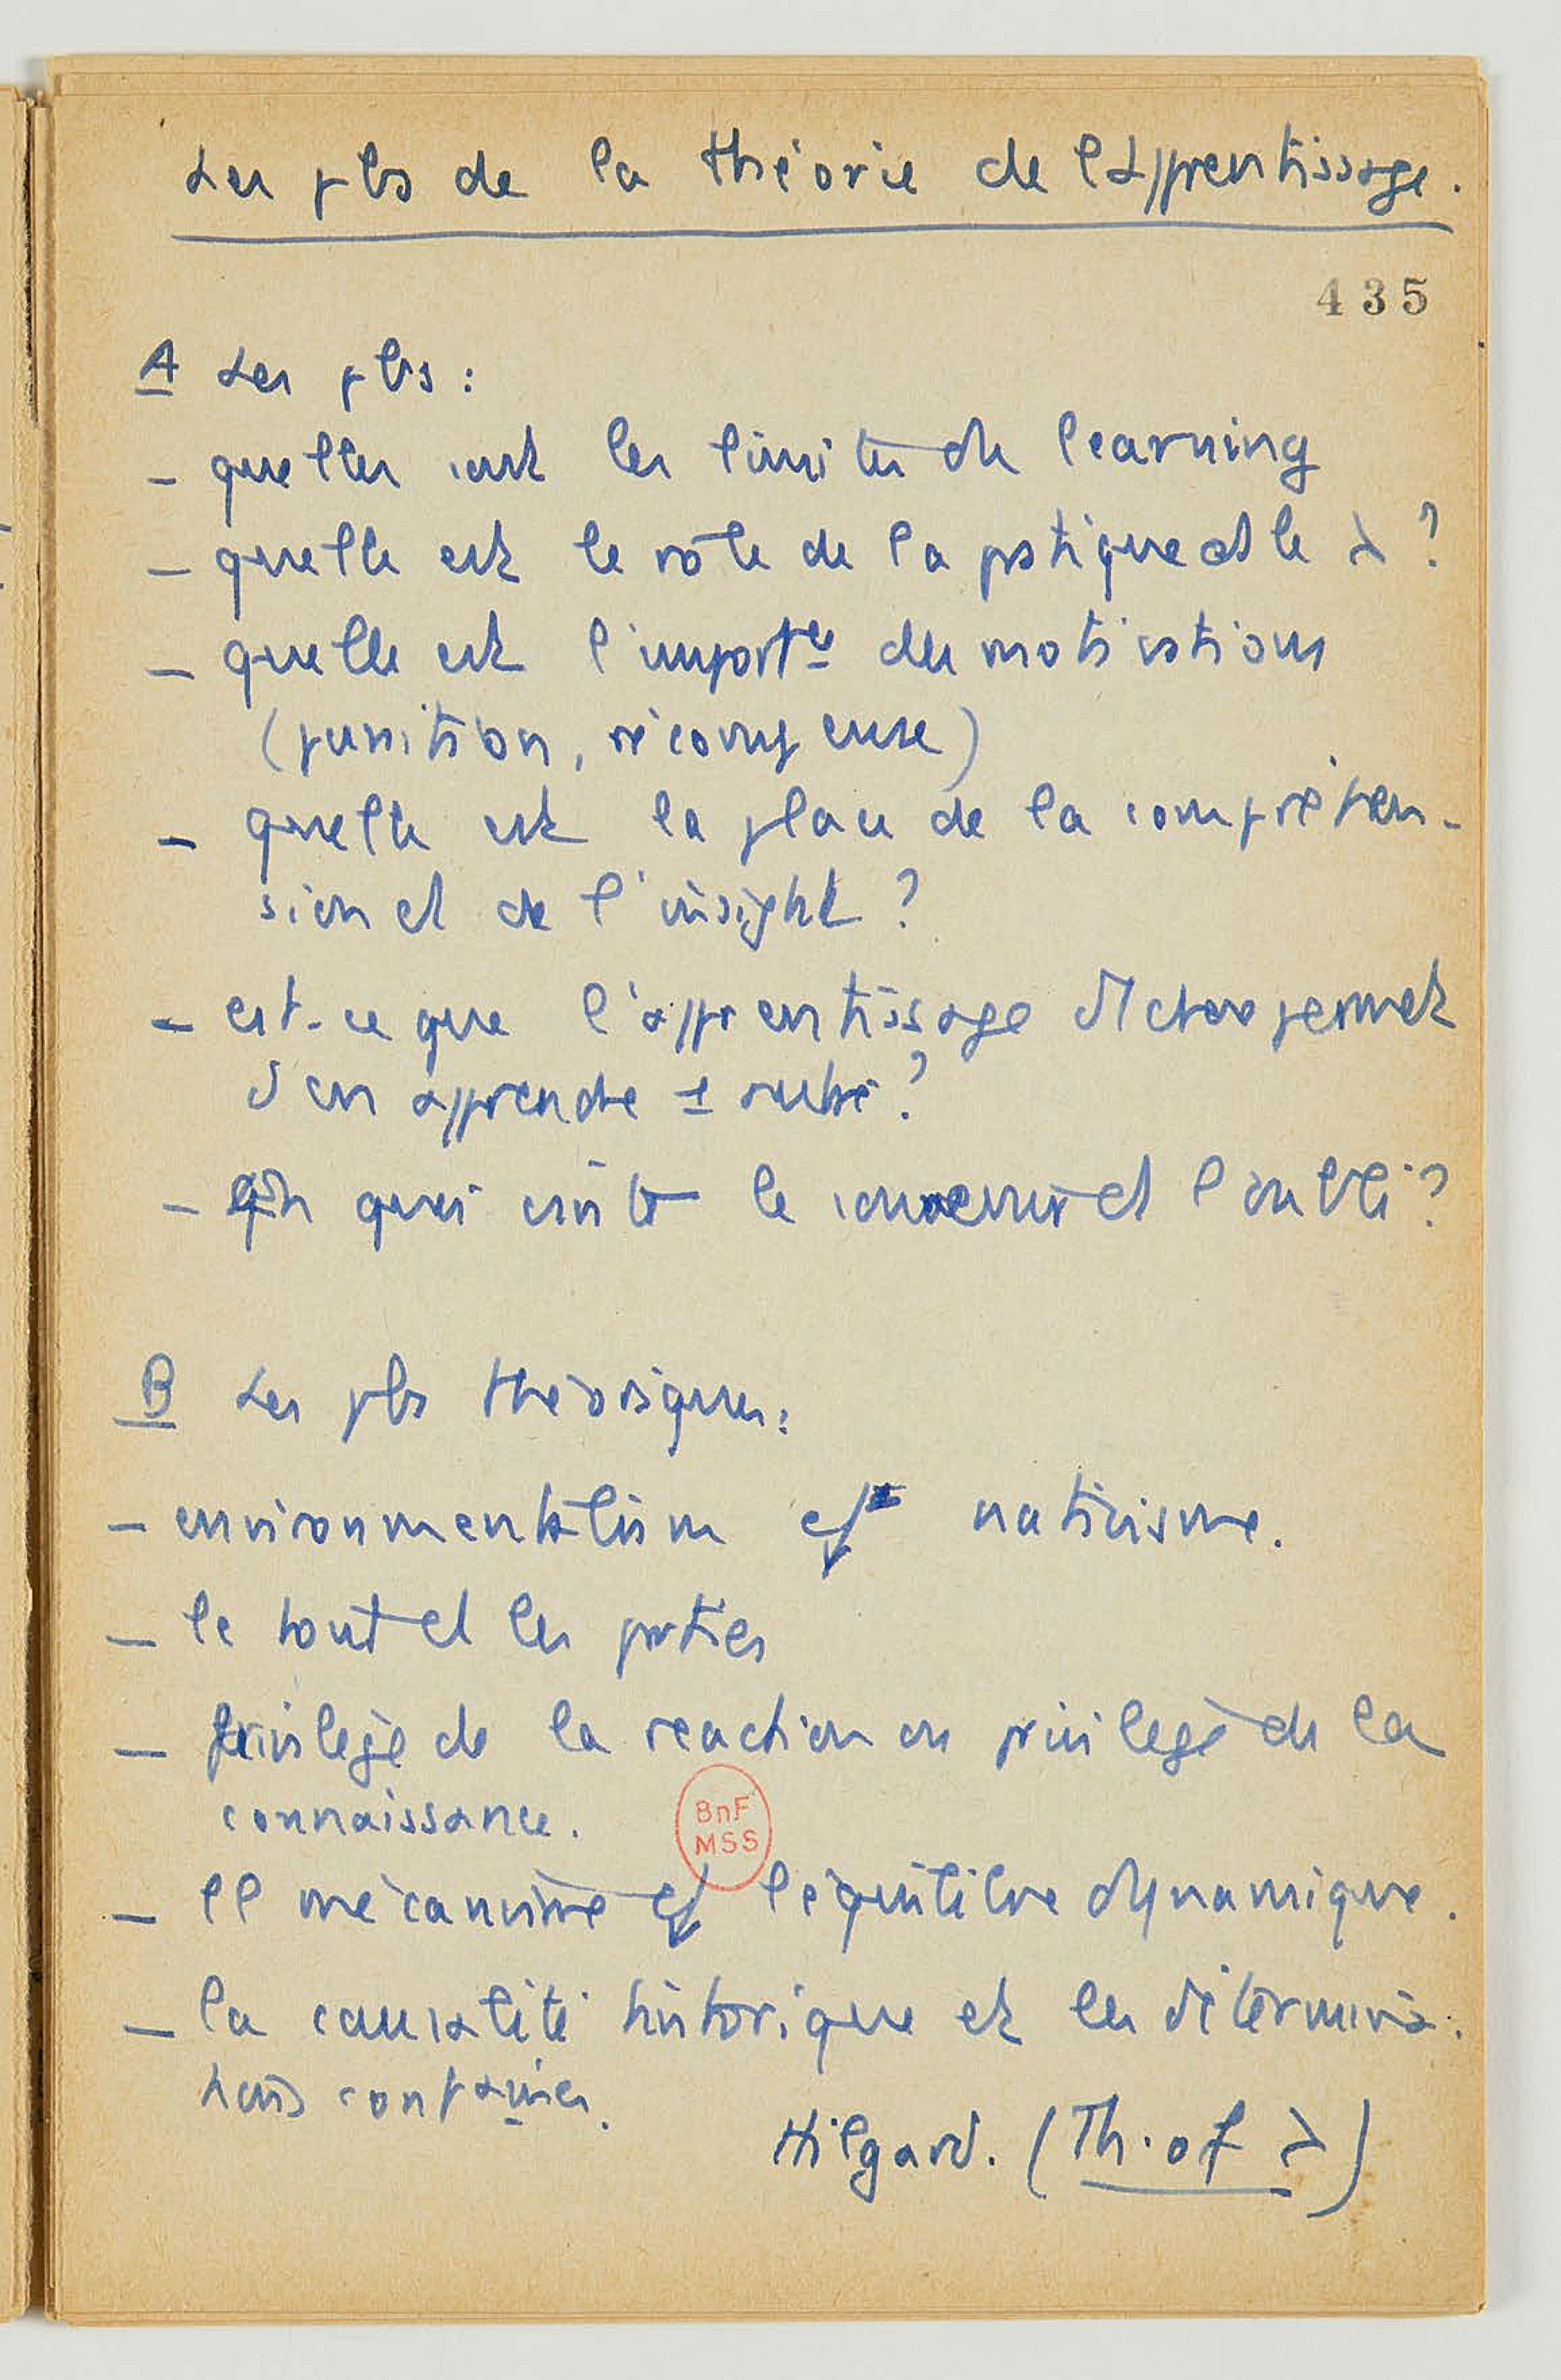 Les pbs de la théorie de l'apprentissage.
435
A Les pbs :
- quelles sont les limites du learning
- quelle est le rôle de la pratique ds le λ ?
- quelle est l'importce des motivations
(punition, récompense)
- quelle est la place de la compréhen-
sion et de l'insight ?
- est-ce que l'apprentissage d'1 chose permet
d'en apprendre 1 autre ?
- En quoi consiste le souvenir et l'oubli ?
B Les pbs théoriques :
- environmentalism et nativisme.
- le tout et les parties
- privilège de la reaction ou privilege de la
connaissance.
- le mécanisme et l'équilibre dynamique.
- la causalité historique et les détermina-
tions
Hilgard. (Th. of λ)
BnF
MSS